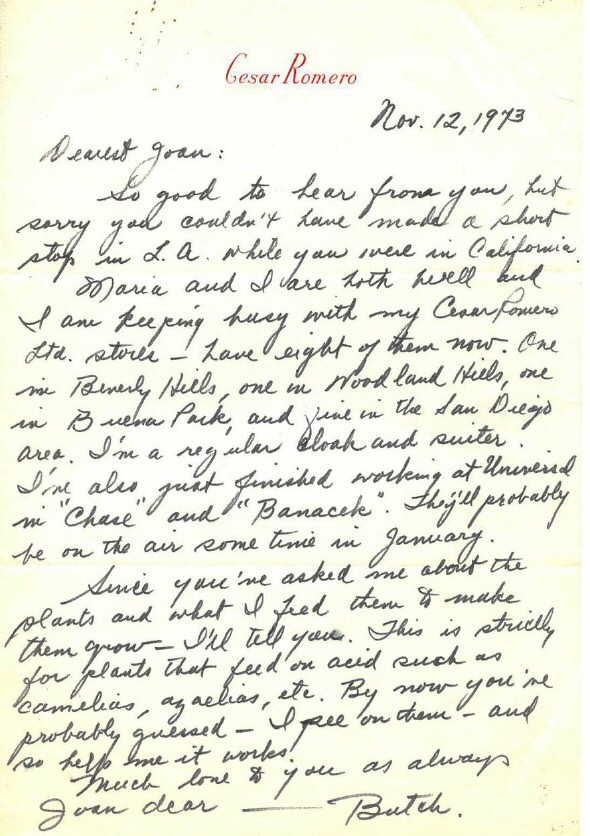 Cesar Romero
Nov. 12, 1973
Dearest Joan:
So good to hear from you, but
sorry you couldn't have made a short
stop in L.A. while you were in California.
Maria and I are both well and
I am keeping busy with my Cesar Romero
Ltd. stores – have eight of them now. One
in Beverly Hills, one in Woodland Hills, one
in Buena Park, and five in the San Diego
area. I'm a regular cloak and suiter.
I've also just finished working at Universal
in "Chase" and "Banacek". They'll probably
be on the air some time in January.
Since you've asked me about the
plants and what I feed them to make
them grow – I'll tell you. This is strictly
for plants that feed on acid such as
camelias, azaelias, etc. By now you've
probably guessed – I pee on them – and
so help me it works.
Much love to you as always
Joan dear —— Butch.